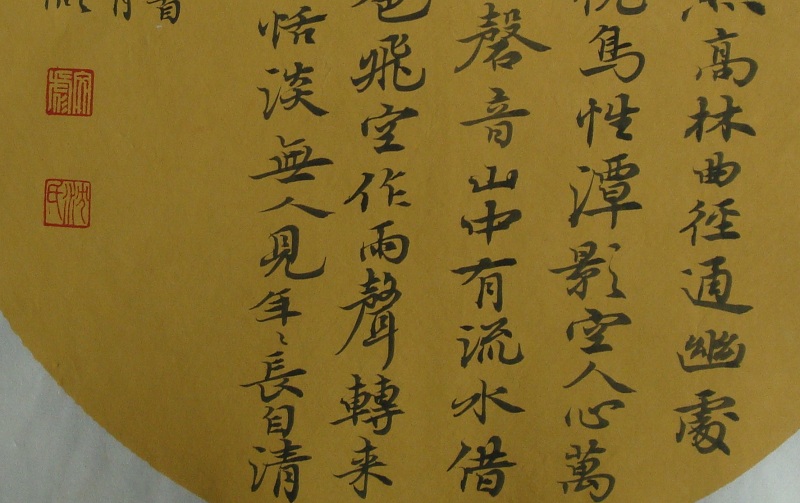 照高林曲徑通幽處
悅鳥性潭影空人心萬
磬音山中有流水借
色飛空作雨聲轉来
恬淡無人見年〻長自清
首
沈氏